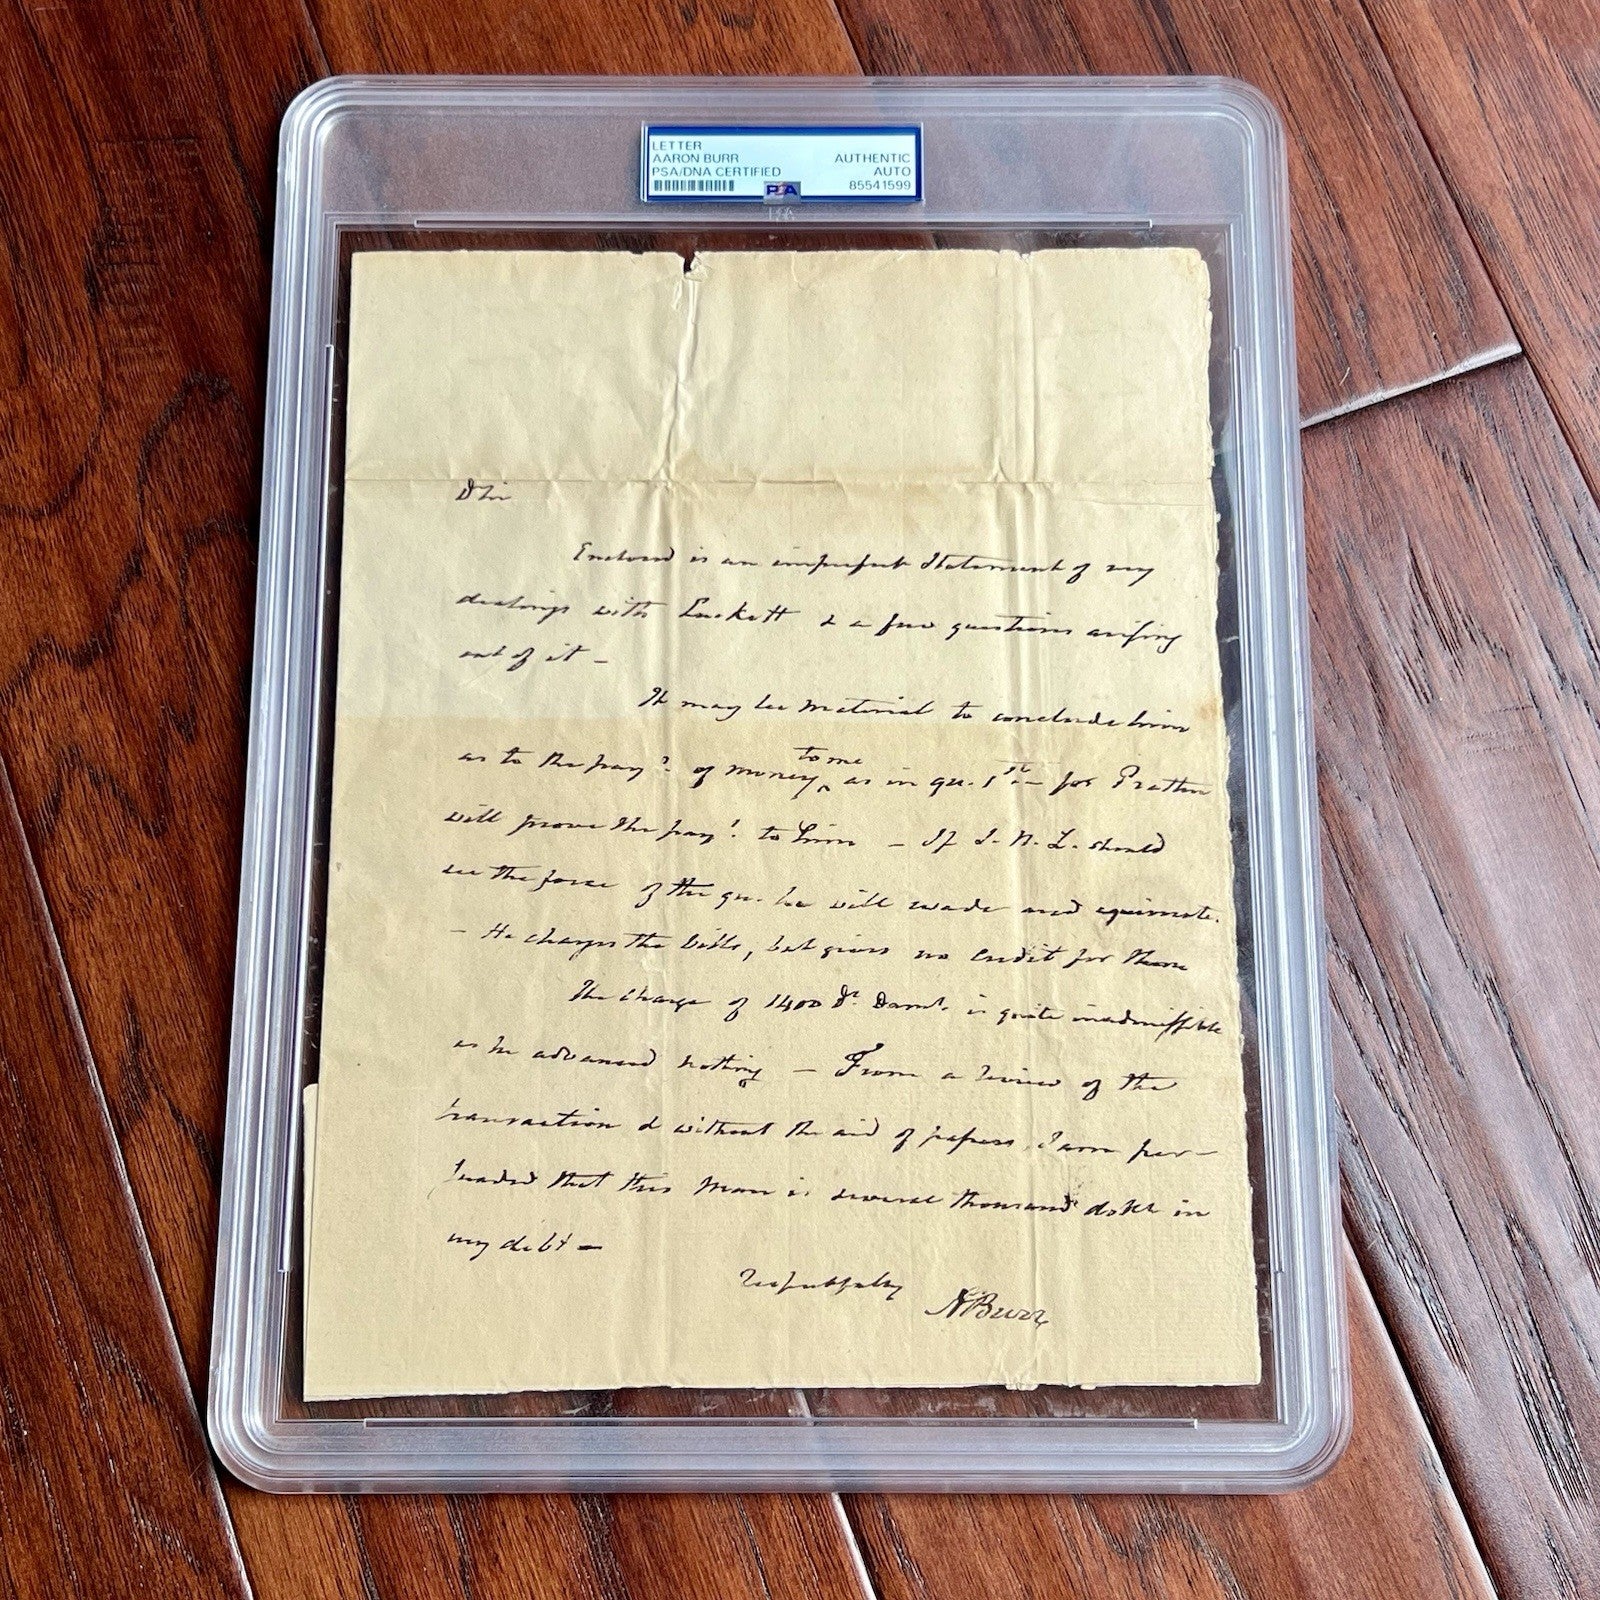 LETTER
AARON BURR AUTHENTIC
PSA/DNA CERTIFIED AUTO
85541599
PSA
D Sir
Enclosed is an imperfect Statement of my
dealings with Luckett & a few questions arising
out of it —
It may be material to conclude him
as to the payt. of money ^ to me as in qu. 1st — for Pratten
will prove the payt. to him — If J. N. L. should
see the force of the qu. he will evade and equivocate.
— He charges the bills, but gives no credit for them
The charge of 1400 Ds. Dams. is quite inadmissible
as he advanced nothing — From a review of the
transaction & without the aid of papers, I am per-
suaded that this Man is several thousand dolls in
my debt —
respectfully
A Burr